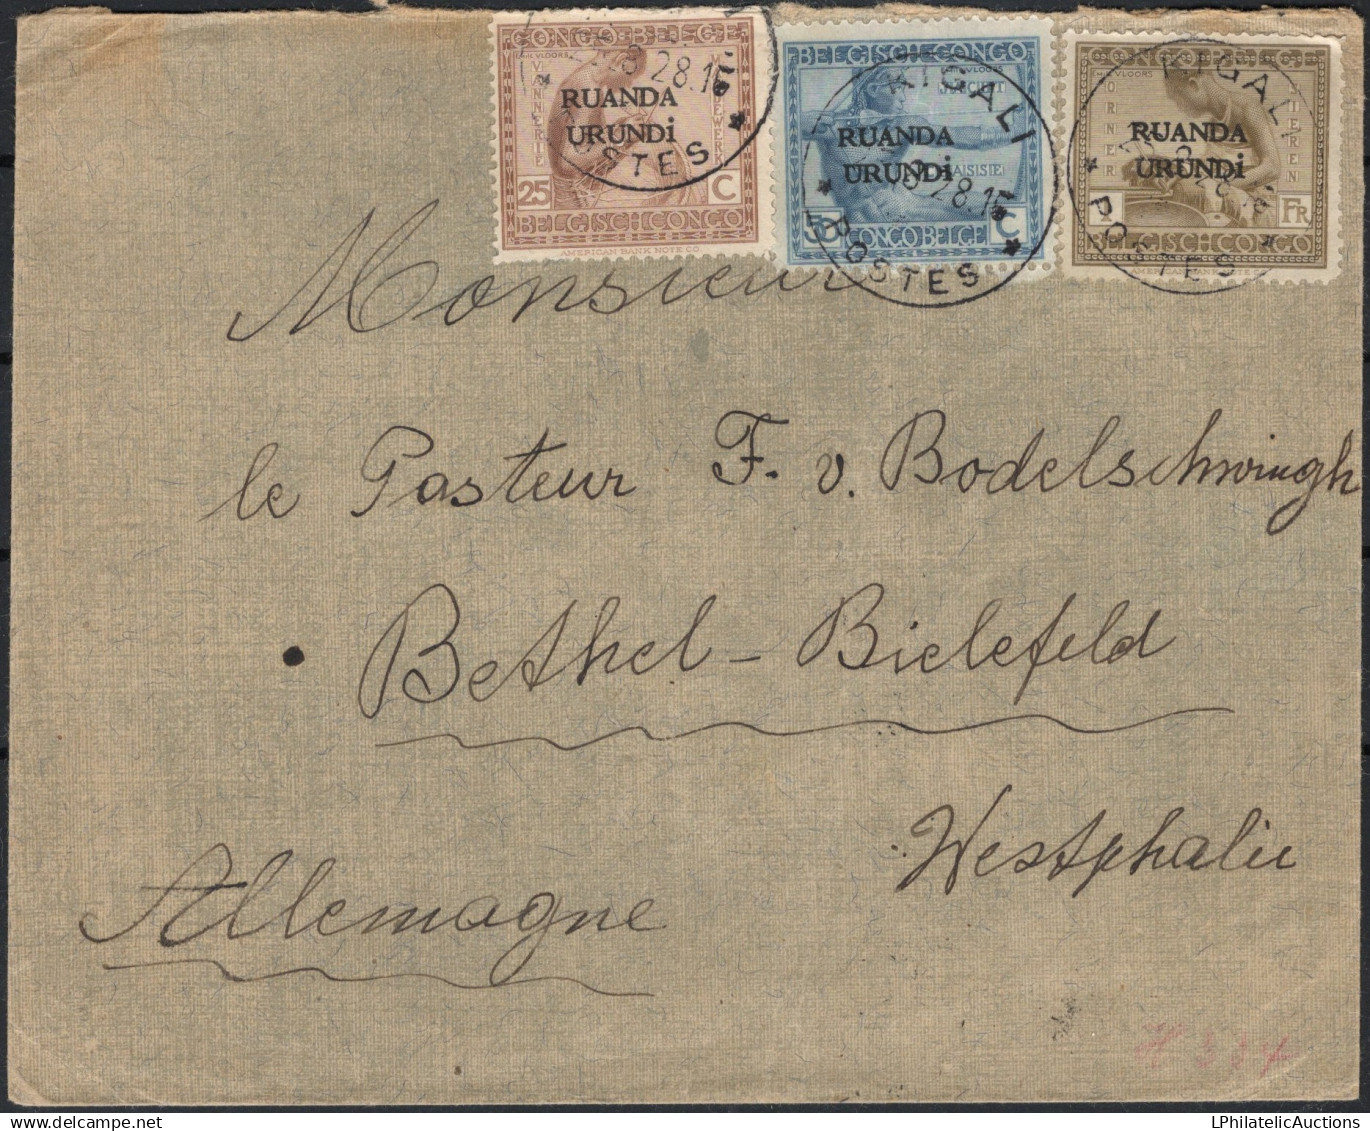 CONGO BELGE
RUANDA
URUNDi
25 C
BELGISCH CONGO
AMERICAN BANK NOTE CO.
POSTES
28.16
BELGISCH CONGO
RUANDA
URUNDi
C
CONGO BELGE
KIGALI
28.16
POSTES
CONGO BELGE
RUANDA
URUNDi
1 FR
BELGISCH CONGO
KIGALI
POSTES
Monsieur
le Pasteur F. v. Bodelschwingh
Bethel - Bielefeld
Westphalie
Allemagne
LPhilatelicAuctions